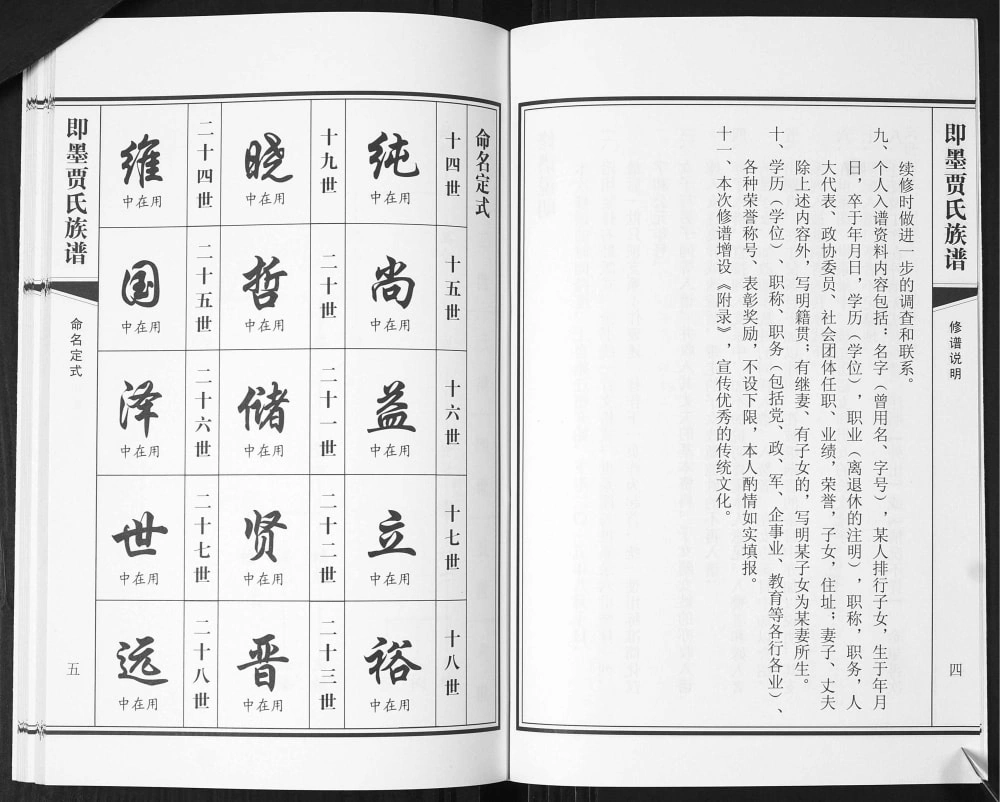 即墨贾氏族谱
修谱说明
四
续修时做进一步的调查和联系。
九、个人入谱资料内容包括：名字（曾用名、字号），某人排行子女，生于年月
日，卒于年月日，学历（学位），职业（离退休的注明），职称，职务，人
大代表、政协委员、社会团体任职、业绩，荣誉，子女，住址；妻子、丈夫
除上述内容外，写明籍贯；有继妻、有子女的，写明某子女为某妻所生。
十、学历（学位）、职称、职务（包括党、政、军、企事业、教育等各行各业）、
各种荣誉称号、表彰奖励，不设下限，本人酌情如实填报。
十一、本次修谱增设《附录》，宣传优秀的传统文化。
命名定式
十四世
纯
中在用
十五世
尚
中在用
十六世
益
中在用
十七世
立
中在用
十八世
裕
中在用
十九世
晓
中在用
二十世
哲
中在用
二十一世
储
中在用
二十二世
贤
中在用
二十三世
晋
中在用
二十四世
维
中在用
二十五世
国
中在用
二十六世
泽
中在用
二十七世
世
中在用
二十八世
远
中在用
即墨贾氏族谱
命名定式
五